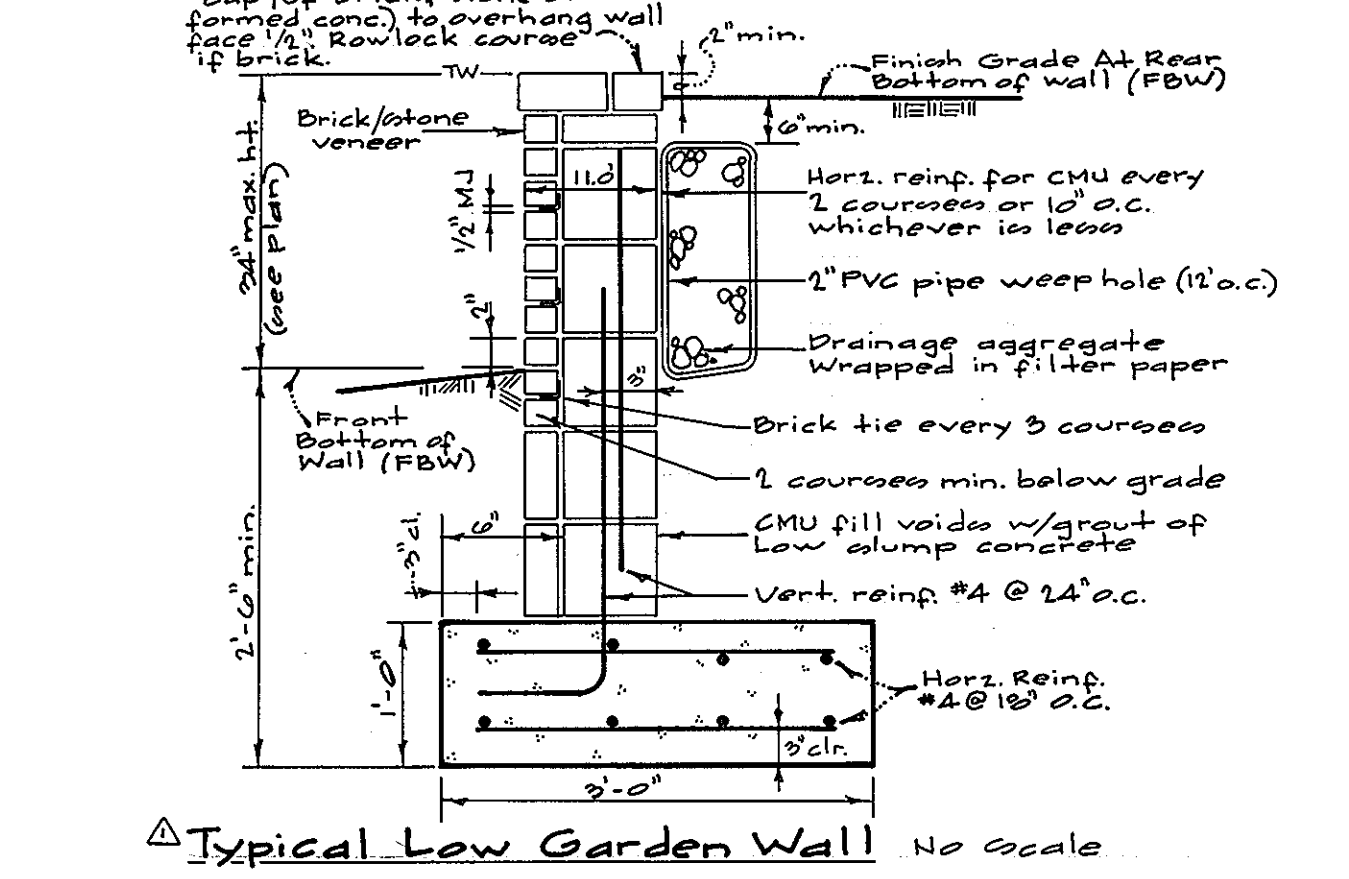 formed conc.) to overhang wall
face 1/2". Rowlock course
if brick.
2" min.
TW
Finish Grade At Rear
Bottom of wall (FBW)
Brick/stone
veneer
6" min.
34" max. ht.
(see plan)
1/2" MJ
11.0
Horz. reinf. for CMU every
2 courses or 10" o.c.
whichever is less
2" PVC pipe weep hole (12' o.c.)
2"
Drainage aggregate
Wrapped in filter paper
3"
Front
Bottom of
Wall (FBW)
Brick tie every 3 courses
2 courses min. below grade
2'-6" min.
3" cl.
6"
CMU fill voids w/grout of
Low slump concrete
Vert. reinf. #4 @ 24" o.c.
1'-0"
Horz. Reinf.
#4 @ 18" O.C.
3" clr.
3'-0"
1
Typical Low Garden Wall No Scale